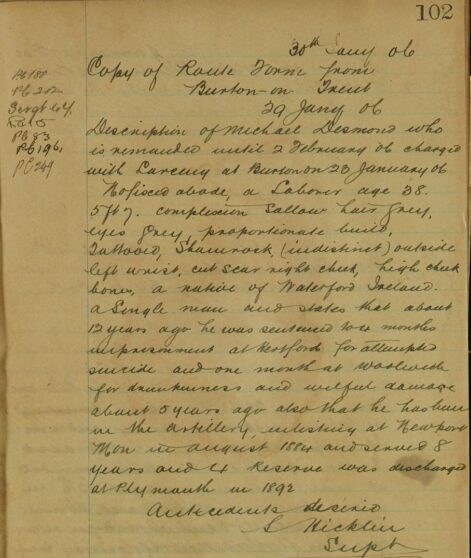 102
30th Jany 06
PC 188
PC 202
Sergt 64
PC 83
PC 196
PC 249
Copy of Route Form from
Burton-on Trent
29 Jany 06
Description of Michael Desmond who
is remanded until 2 February 06 charged
with Larceny at Burton on 23 January 06
No fixed abode, a Laborer age 38.
5ft 7. complexion Sallow hair Grey,
eyes Grey, proportionate build,
Tattooed, Shamrock (indistinct) outside
left wrist, cut scar right cheek, high cheek
bones, a native of Waterford Ireland.
a Single man and states that about
12 years ago he was sentenced to 4 months
imprisonment at Hertford for attempted
suicide and one month at Woolwich
for drunkenness and wilful damage
about 5 years ago also that he has been
in the Artillery, inlisting at Newport
Mon in August 1884 and served 8
years and 4 Reserve was discharged
at Plymouth in 1892
Antecedents desired
S Hicklin
Supt